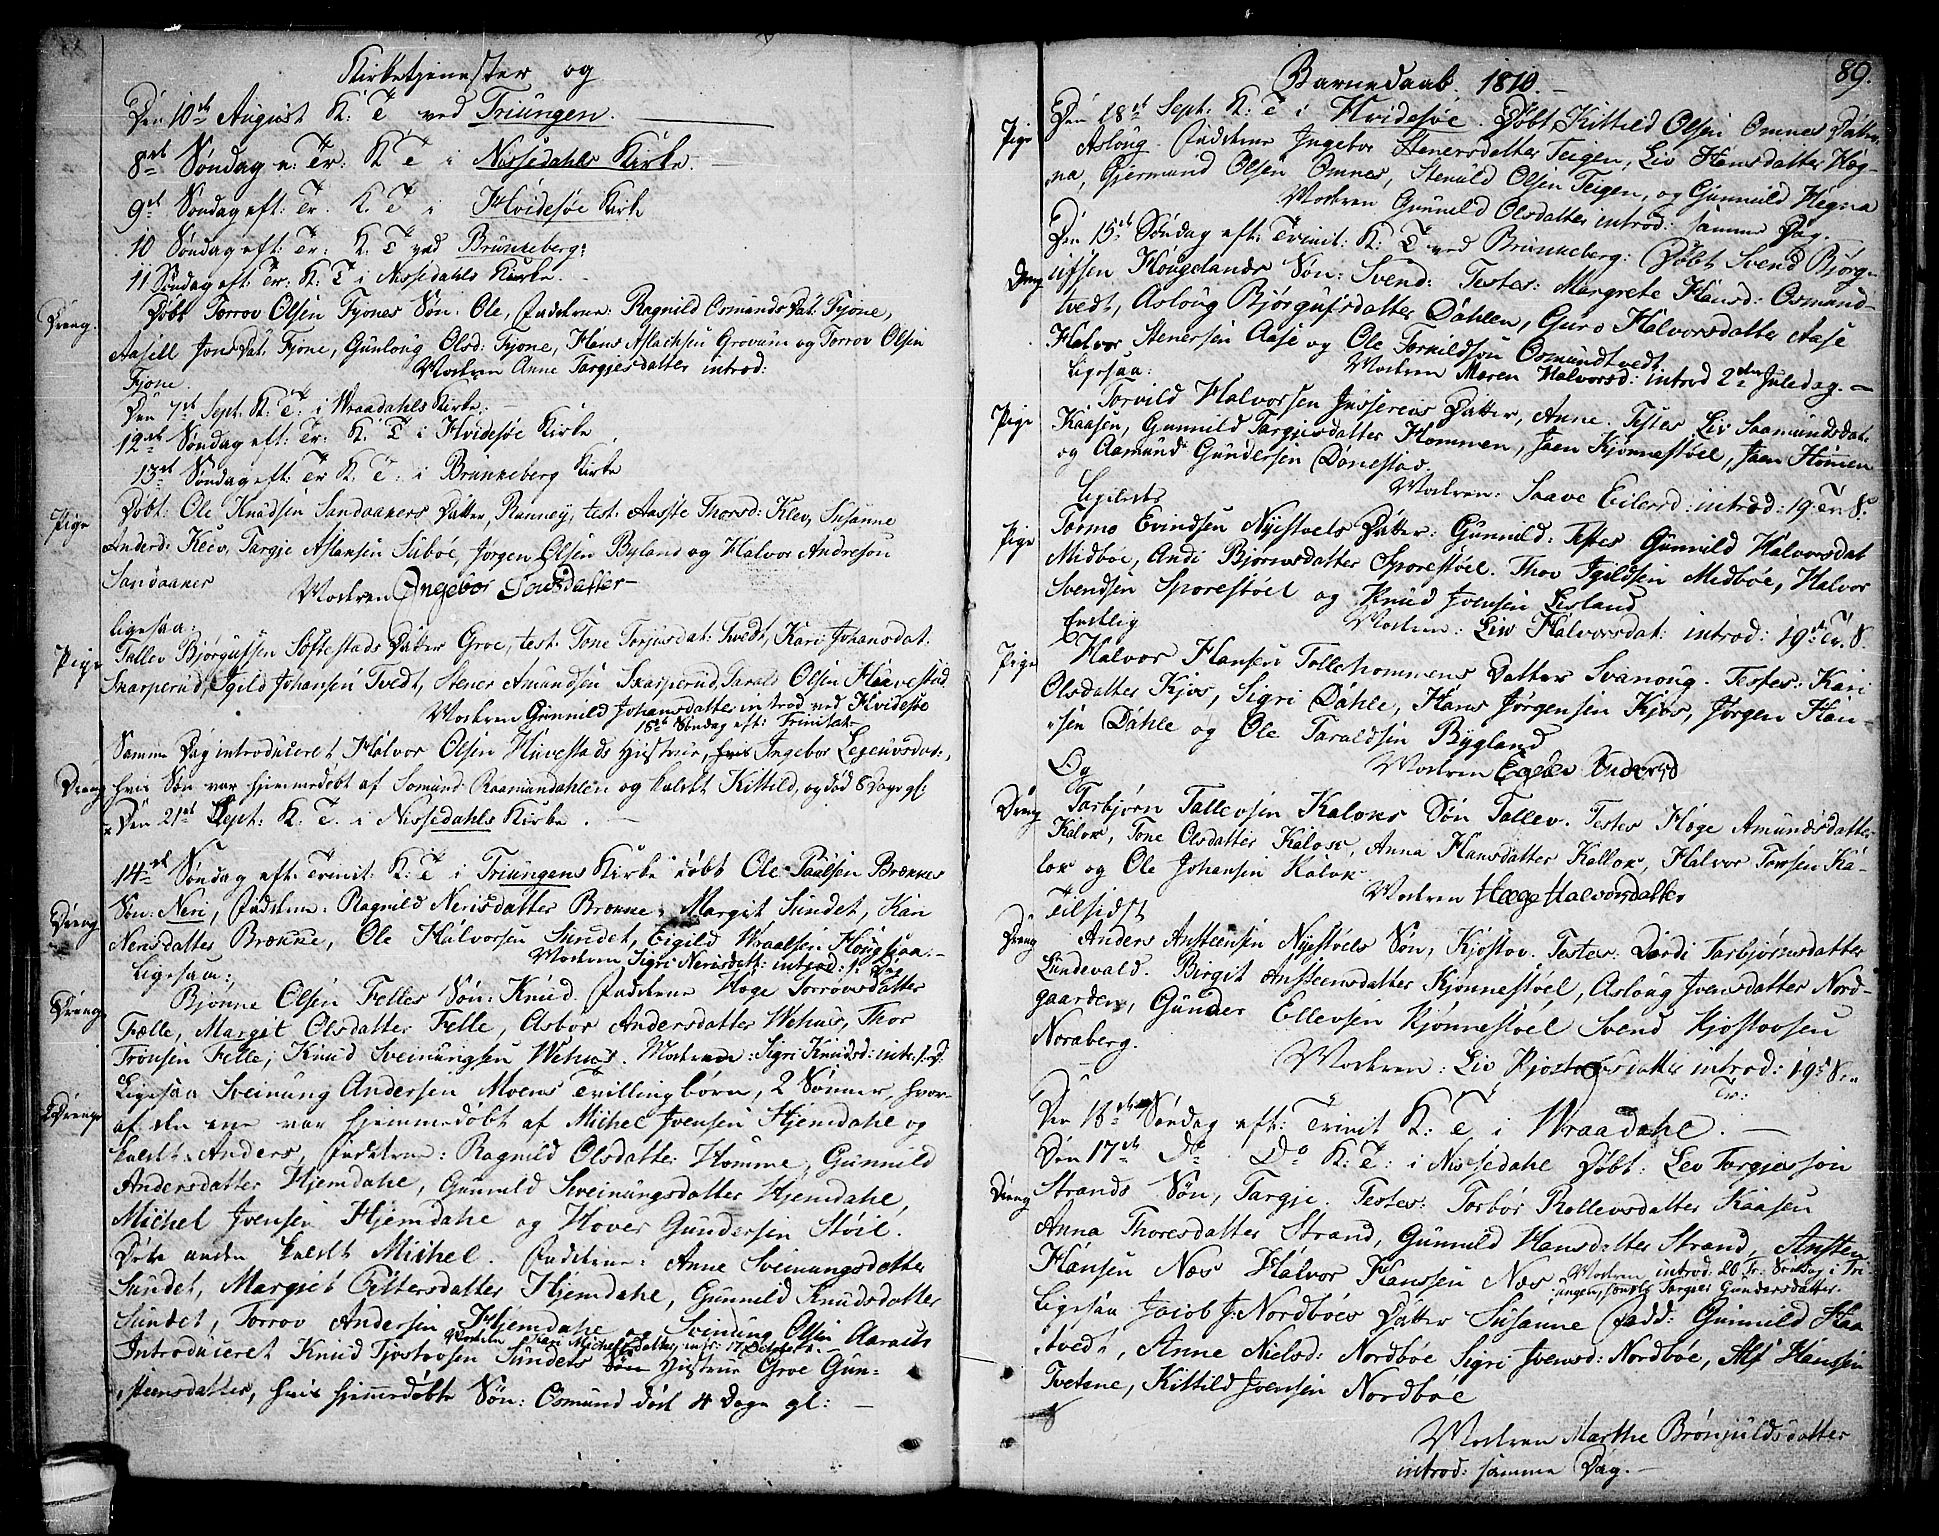 Kirketjenester og
Den 10de August K: T ved Triungen.
8de Søndag e: Tr: K T i Nissedahls Kirke.
9de Søndag eft: Tr. K. T i Hvidesøe Kirke
10 Søndag eft: Tr: K: T ved Brunkeberg:
11 Søndag eft: Tr: K: T i Nissedahls Kirke.
Dreng. Døbt Torrov Olsen Fjones Søn. Ole, Fadderne: Ragnild Osmunds Dat: Fjone,
Aasill Jons Dat: Fjone, Gunloug Olsd: Fjone, Hans Aslachsen Grovum og Torrov Olsen
Fjone. Modren Anne Targjesdatter introd:
Den 7de Sept: K: T: i Wraadahls Kirke:
12te Søndag eft: Tr: K: T i Hvidesøe Kirke
13de Søndag eft: Tr K: T: i Brunkeberg Kirke
Pige Døbt: Ole Knudsen Sandaakers Datter, Ranney, test: Aaste Thorsd: Klev, Susanne
Anderd: Klev, Targje Aslaksen Siiboe, Jørgen Olsen Byland og Halvor Andreson
Sandaaker Modren Ingebor Tonsdatter
ligesaa:
Pige Tallev Bjørgufsen Softestads Datter Groe, test: Tone Torjusdat: Tvedt, Kari Johansdat:
Skarperud, Igild Johansen Tvedt, Stener Amundsen Skarperud, Tarald Olsen Hievestad
Modren Gunnild Johansdatter introd ved Hvidesøe
16de Søndag eft: Trinitat
Samme Dag introduceret Halvor Olsen Huvestads Hustrue, Ingebor Legeuvsdat:,
Dreng hvis Søn var hjemmedøbt af Somund Raamundahlen og kaldt Kittild, og død 8 Dage gl:
Den 21de Sept: K: T. i Nissedahls Kirke.
14de Søndag eft: Trinit: K: T i Triungens Kirke døbt Ole Paalsen Brækkes
Dreng Søn: Neri, Fadderne: Ragnild Nerisdatter Brække, Margit Sundet, Kari
Nerisdatter Brække, Ole Halvorsen Sundet, Eigild Wraalsen Haugesaa.
Modren Sigri Nerisdatt: introd: s: Dag
Ligesaa:
Dreng Bjønne Olsen Felles Søn: Knud. Fadderne Hoge Torrovsdatter
Fælle, Margit Olsdatter Felle, Asbor Andersdatter Wehus, Thor
Tronsen Felle, Knud Sveinungsen Wehus. Modrene: Sigri Knudsd: intr: s: D:
2 Drenge Ligesaa Sveinung Andersen Moens Tvillingbørn, 2 Sønner, hvor-
af den ene var hjemmedøbt af Michel Jvensen Hjemdahl og
kaldt Anders, Fadderne: Ragnild Olsdatter Homme, Gunnild
Andersdatter Hjemdahl, Gunnild Sveinungsdatter Hjemdahl,
Michel Jvensen Hjemdahl og Hover Gundersen Støil.
Dete anden kaldt Michel. Fadderne: Anne Sveinungsdatter
Sundet, Margit Gittersdatter Hjemdahl, Gunnild Knudsdatter
Sundet, Torrov Andersen Hjemdahl og Svinung Olsen Aarach
Modren Kari Michelsdatter, intr: 17 October.
Introduceret Knud Tjostovsen Sundets Søn Hustrue Groe Gun-
stensdatter, hvis hjemmedøbte Søn: Osmund død 4 Dage gl:
Barnedaab. 1810. 89.
Pige Den 28de Sept: K: T i Hvidesøe. Døbt Kittild Olsen Omnes Datter
Aslaug. Fadderne Ingebor Stenersdatter Teigen, Liv Hansdatter Heg-
na, Gjermund Olsen Omnes, Stenuld Olsen Teigen, og Gunnuld Hegna
Modren Gunnild Olsdatter introd: samme Dag.
Den 15de Søndag eft: Trinit: K: T ved Brunkeberg: Døbt Svend Bjørg-
Dreng ufsen Hougelands Søn: Svend: Testes: Margrete Hansd: Osmund-
tvedt, Asloug Bjørgufsdatter Dahlen, Guro Halvorsdatter Aase
Halvor Stenersen Aase og Ole Torkildsen Osmundtvedt
Ligesaa: Modren Maren Halvorsd: introd 2den Juledag.
Pige Torvild Halvorsen Datter, Anne. Testes Liv Saamundsdat:
Kaasen, Gunnild Targjesdatter Hommen, Jaen Kjønnestøel, Jaen Homen
og Aamund Gundersen Dønestad.
Modren: Saave Eilersd: introd: 19: Tr S:
Ligeledes
Pige Tormo Evindsen Nyestoels Datter: Gunnild: Testes Gunnild Halvorsdat
Midboe, Andi Bjørnsdatter Sporestøel. Thov Igildsen Midbøe, Halvor
Svendsen Sporestøel og Knud Jvensen Lisland
Endelig Modren: Liv Halvorsdat: introd: 19de Tr. S.
Pige Halvor Hansen Tollehommens Datter Svanoug. Testes: Kari
Olsdatter Kjøs, Sigri Dahle, Hans Jørgensen Kjøs, Jørgen Han-
sen Dahle og Ole Taraldsen Bygland
Og Modren Egeler Andersd
Dreng Tarbjørn Tallevsen Kaloks Søn Tallev. Testes Hæge Amundsdatter
Kalok, Tone Olsdatter Kalok, Anna Hansdatter Kallok, Halvor Tovsen Ka-
lok og Ole Johansen Kalok
Modren Hæge Halvorsdatter
Tilsidst
Dreng Anders Anstensen Nyestøels Søn, Kjøstov. Testes: Dordi Tarbjørnsdatter
Lundevald. Birgit Anstensdatter Kjønnestøel, Aslong Jvensdatter Nord-
gaarden, Gunder Ellevsen Kjønnestøel Svend Kjostovsen
Noraberg.
Modren: Liv Kjostovsdatter introd: 19de S.
Tr:
Den 18de Søndag eft: Trinit K: T i Wraadahl.
Den 17de Do. Do K: T: i Nissedahl Døbt: Lev Targjesson
Dreng Strands Søn, Targje. Testes: Torbor Rollevsdatter Kaasen
Anna Thoresdatter Strand, Gunnuld Hansdatter Strand, Ansten
Hansen Næs Halvor Hanssen Næs Modren introd: 20 Tr: Søndag i Tri-
ungen, Targier Gundersdatter.
Ligesaa Jacob J: Nordbøes Datter Susanne Fadd: Gunnild Haa
tvedt, Anne Nielsd: Nordbøe Sigri Jvensd: Nordbøe, Alf Hanssen
Tvetene, Kittild Jvensen Nordbøe
Modren Marthe Brønjuldsdatter
introd: samme Dag.